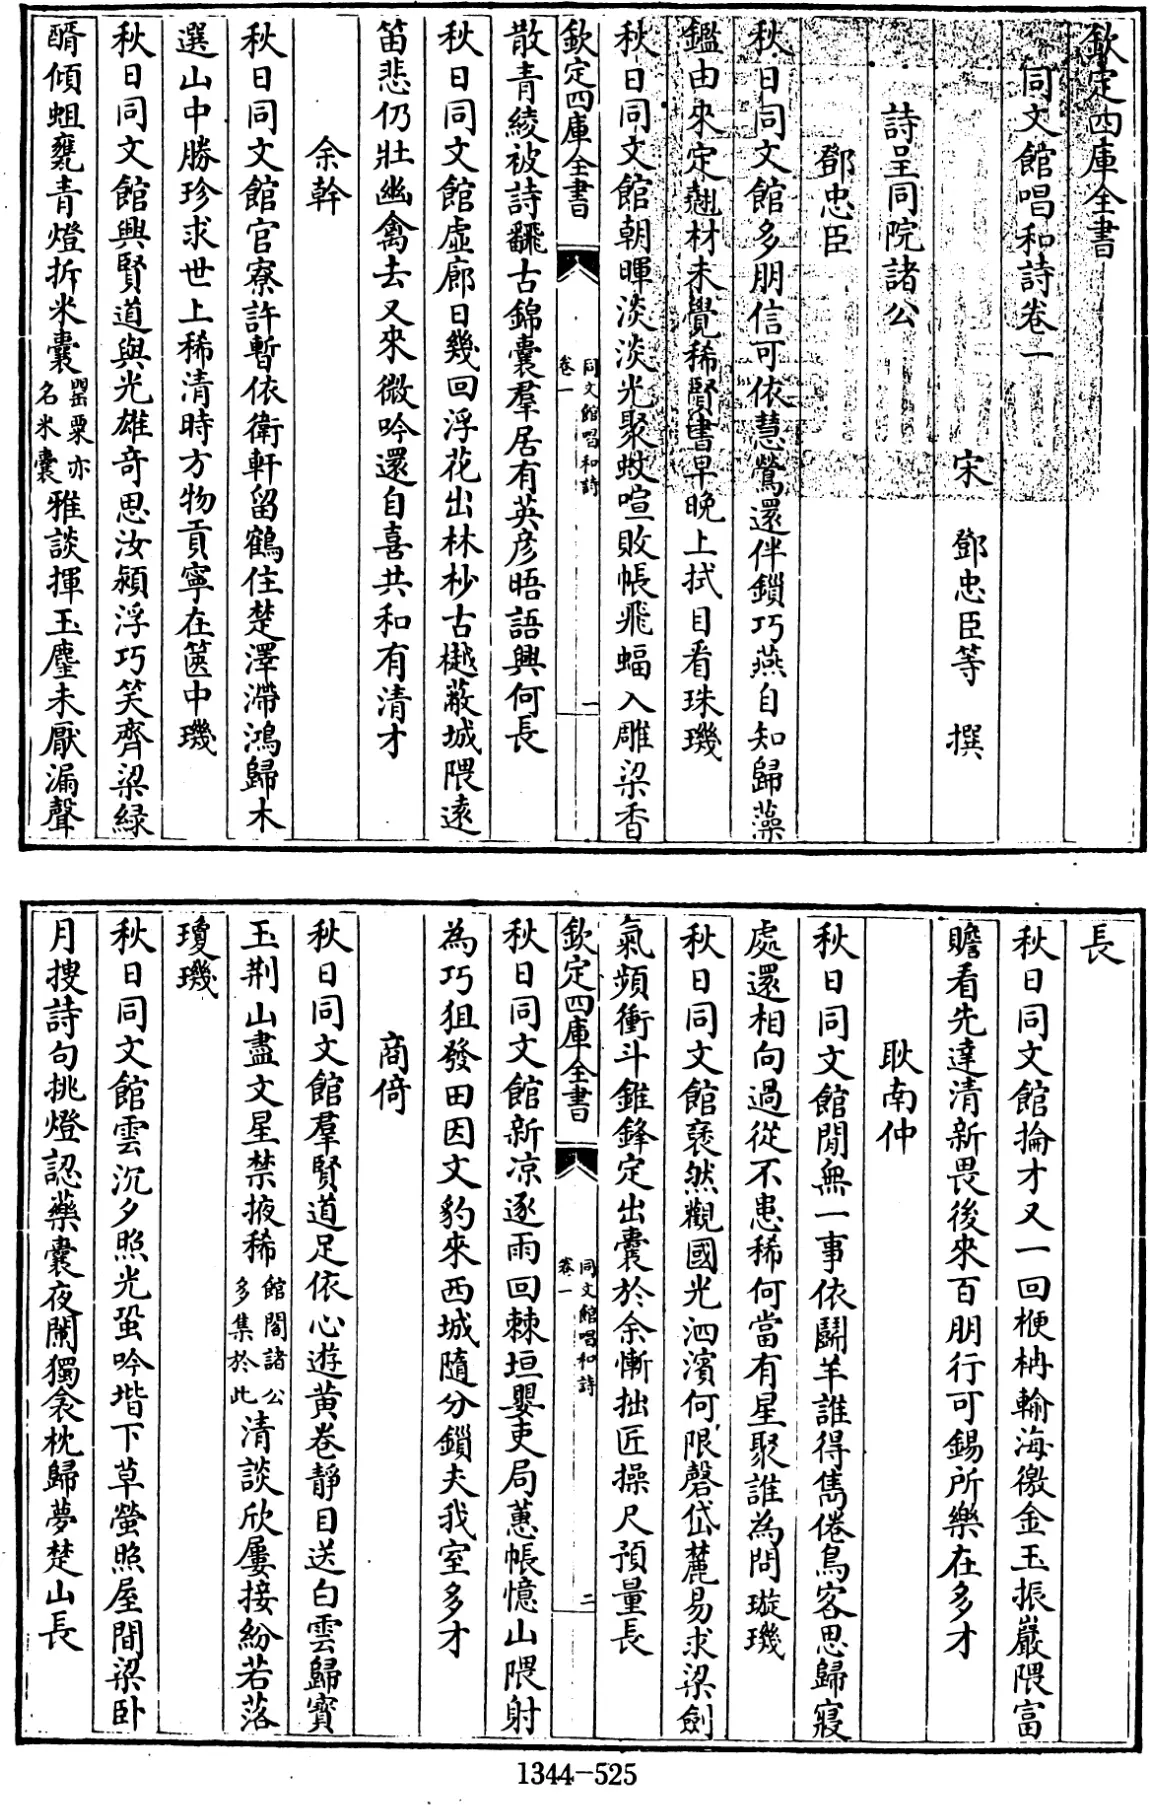 欽定四庫全書
同文館唱和詩卷一
宋 鄧忠臣等 撰
詩呈同院諸公
鄧忠臣
秋日同文館多朋信可依慧鶯還伴鎖巧燕自知歸藻
鑑由來定翹材未覺稀賢書早晚上拭目看珠璣
秋日同文館朝暉淡淡光聚蚊喧敗帳飛蝠入雕梁香
欽定四庫全書
同文館唱和詩
卷一
一
散青綾被詩飜古錦囊羣居有英彦晤語興何長
秋日同文館虚廊日幾回浮花出林杪古樾蔽城隈遠
笛悲仍壯幽禽去又來微吟還自喜共和有清才
余幹
秋日同文館官寮許暫依衛軒留鶴住楚澤滯鴻歸木
選山中勝珍求世上稀清時方物貢寧在篋中璣
秋日同文館興賢道與光雄奇思汝潁浮巧笑齊梁緑
醑傾蛆甕青燈拆米囊罌粟亦名米囊雅談揮玉麈未厭漏聲
長
秋日同文館掄才又一回楩柟輸海徼金玉振巖隈富
贍看先達清新畏後來百朋行可錫所樂在多才
耿南仲
秋日同文館閒無一事依鬬羊誰得雋倦鳥客思歸寢
處還相向過從不患稀何當有星聚誰為問璇璣
秋日同文館褎然觀國光泗濱何限磬岱麓易求梁劍
氣頻衝斗錐鋒定出囊於余慚拙匠操尺預量長
欽定四庫全書
同文館唱和詩
卷一
二
秋日同文館新凉逐雨回棘垣嬰吏局蕙帳憶山隈射
為巧狙發田因文豹來西城隨分鎖夫我室多才
商倚
秋日同文館羣賢道足依心遊黄卷靜目送白雲歸寳
玉荆山盡文星禁掖稀館閣諸公多集於此清談欣屢接紛若落
瓊璣
秋日同文館雲沉夕照光蛩吟堦下草螢照屋間梁卧
月搜詩句挑燈認藥囊夜闌獨衾枕歸夢楚山長
1344-525